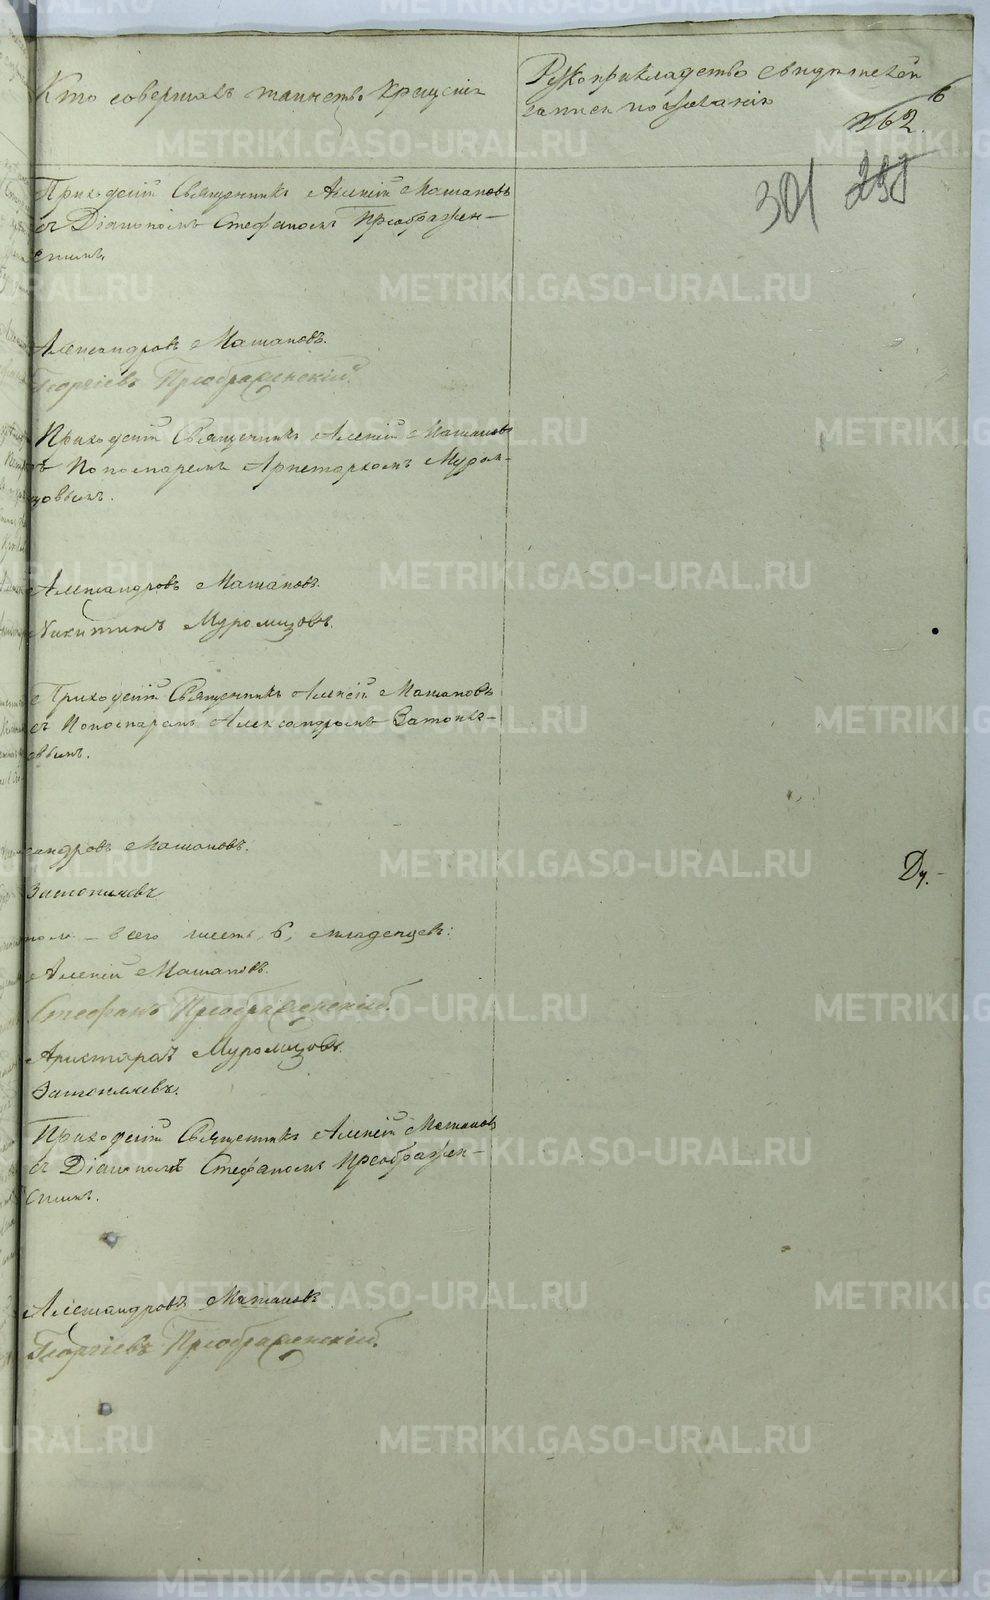 Кто совершалъ таинство Крещенія
Рукоприкладство свидѣтелей
записи по желанію
6
262.
301 255
Приходскій Священникъ Алексій Машановъ
съ Діакономъ Стефаномъ Преображен-
скимъ
Александровъ Машановъ.
Георгіевъ Преображенскій.
Приходскій Священникъ Алексій Машановъ
съ Пономаремъ Аристархомъ Муром-
цовымъ.
Александровъ Машановъ.
Никитинъ Муромцовъ.
Приходскій Священникъ Алексій Машановъ
съ Пономаремъ Александромъ
евымъ.
сандровъ Машановъ.
Ду.
поло — всего шесть, 6, младенцевъ:
Алексій Машановъ.
Стефанъ Преображенскій.
Аристархъ Муромцовъ.
Приходскій Священникъ Алексій Машановъ
съ Діакономъ Стефаномъ Преображен-
скимъ.
Александровъ Машановъ
Георгіевъ Преображенскій.
METRIKI.GASO-URAL.RU